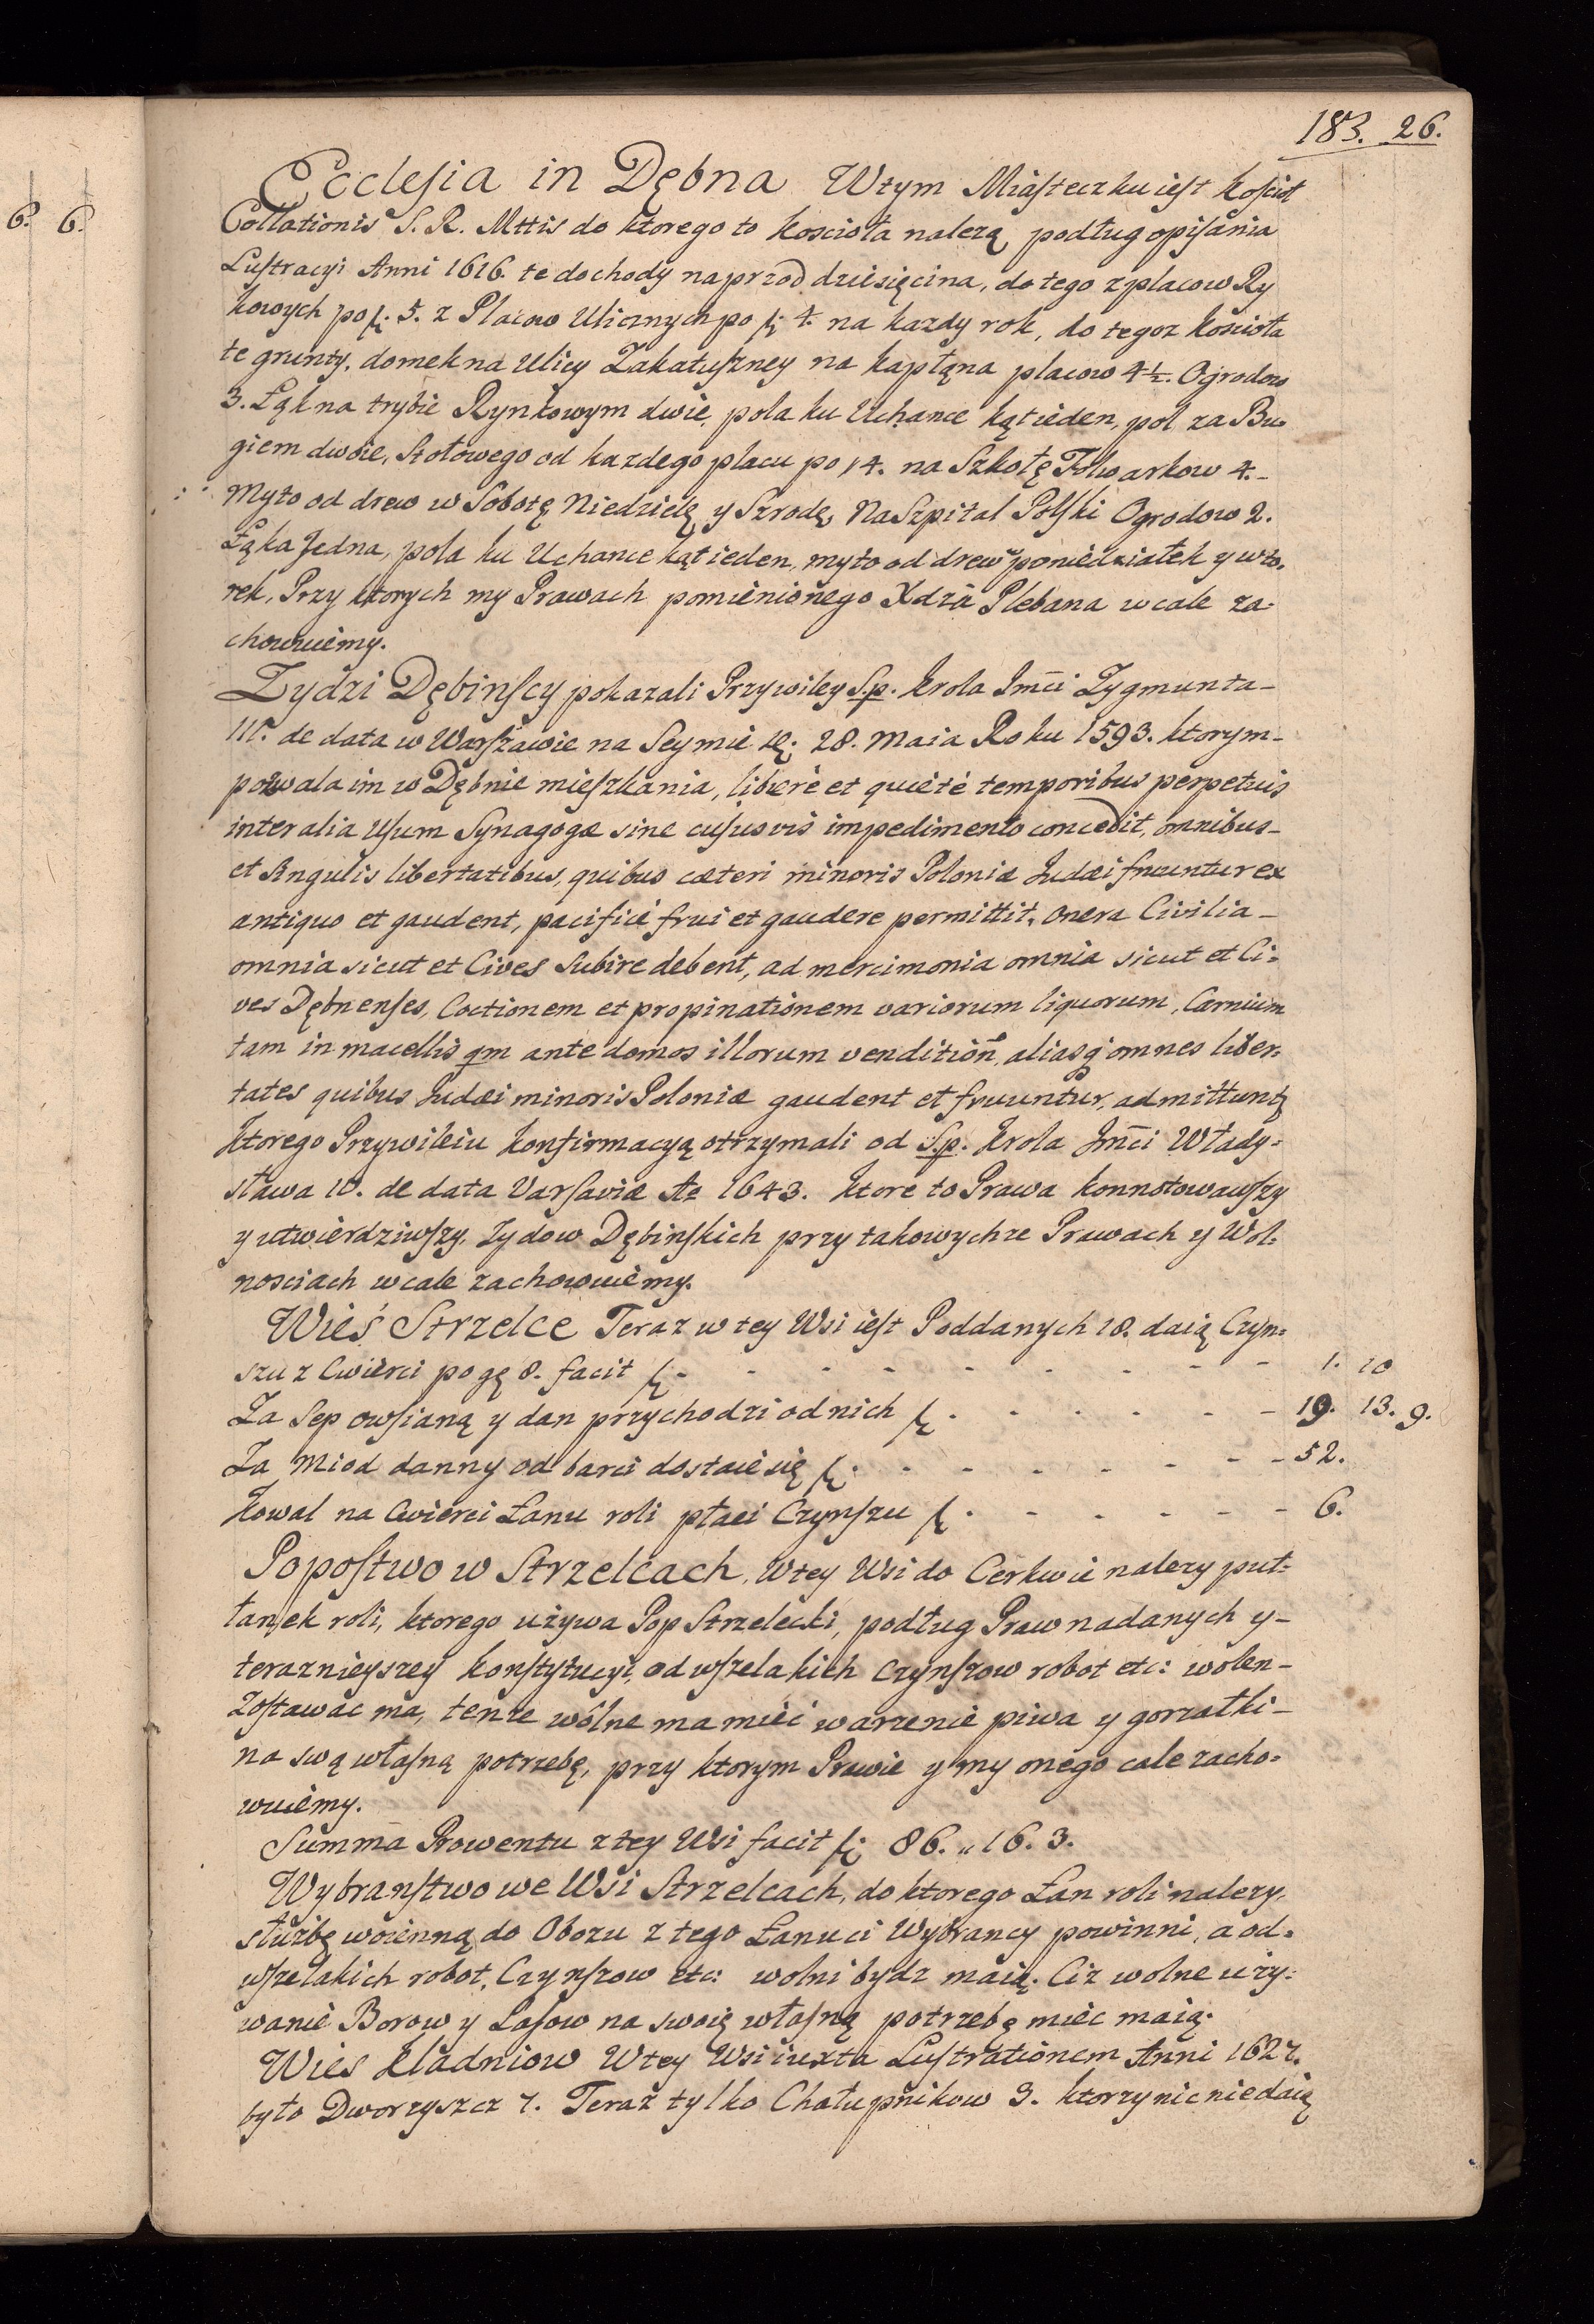 183. 26.
6. 6.
Ecclesia in Dębna Wtym Miasteczku iest kościoł
Collationis S. R. Mttis do ktorego to kosciola nalezą podług opisania
Lustracyi Anni 1616. te dochody naprzod dziesięcina, do tego z placow Ry
kowych po fl. 5. z Placow Ulicznych po fl. 4. na kazdy rok, do tegoz kościoła
te grunty, domek na Ulicy Zakałuszney na kapłąna placow 4½. Ogrodow
3. Łąk na trybie Rynkowym dwie, pola ku Uchance kąt ieden, pol za Bu-
giem dwoie, Stołowego od kazdego placu po 14. na Szkołę Folwarkow 4.-
Myto od drew w Sobotę Niedzielę y Szrodę, Na Szpital Polski Ogrodow 2.
Łąka Jedna, pola ku Uchance kąt ieden, myto od drew poniedziałek y wto-
rek, Przy ktorych my Prawach pomienionego Xdza Plebana w cale za-
chowuiemy.
Zydzi Dębinscy pokazali Przywiley S.p. krola Jmci Zygmunta-
III. de data w Warszawie na Seymie 28. Maia Roku 1593. ktorym-
pozwala im w Dębnie mieszkania, liberè et quietè temporibus perpetuis
inter alia Usum Synagogæ sine cujusvis impedimento concedit, omnibus-
et singulis libertatibus, quibus cæteri minoris Poloniæ Judæi fruuntur ex
antiquo et gaudent, pacificè frui et gaudere permittit, Onera Civilia-
omnia sicut et Cives Subire debent, ad mercimonia omnia sicut et Ci-
ves Dębnenses, Coctionem et propinationem variorum liquorum, Carnium
tam in macellis qm ante domos illorum vendition, aliasq omnes liber-
tates quibus Judæi minoris Poloniæ gaudent et fruuntur, admittunt
ktorego Przywileiu konfirmacyą otrzymali od S.p. krola Jmci Włady-
sława IV. de data Varsaviæ Ao 1643. ktore to Prawa konnotowawszy
y utwierdziwszy, Zydow Dębinskich przy takowychze Prawach y Wol-
nosciach w cale zachowuiemy.
Wieś Strzelce Teraz w tey Wsi iest Poddanych 18. daią Czyn-
szu z Cwierci po gę 8. facit fl. - - - - - - - - 1. 10
Za Sep owsianą y dan przychodzi od nich fl. - - - - - 19. 13. 9.
Za Miod danny od barci dostaie się fl. - - - - - - 52.
Kowal na Cwierci Łanu roli płaci Czynszu fl. - - - - - 6.
Popostwo w Strzelcach, Wtey Wsi do Cerkwie nalezy puł-
łanek roli, ktorego używa Pop Strzelecki, podług Praw nadanych y-
teraznieyszey konstytucyi, od wszelakich Czynszow robot etc: wolen-
zostawac ma, tenze wólne ma mieć warzenie piwa y gorzałki-
na swą własną potrzebę, przy ktorym Prawie y my onego cale zacho-
wuiemy.
Summa Prowentu z tey Wsi facit fl. 86. „ 16. 3.
Wybranstwo we Wsi Strzelcach, do ktorego Łan roli nalezy,
służbę woienną do Obozu z tego Łanu ci Wybrancy powinni, a od-
wszelakich robot, Czynszow etc: wolni bydz maią. Ciz wolne uzy-
wanie Borow y Lasow na swoię własną potrzebę miec maią.
Wies Kladniow Wtey Wsi iuxta Lustrationem Anni 1627.
było Dworzyszcz 7. Teraz tylko Chałupnikow 3. ktorzy nic nie daią